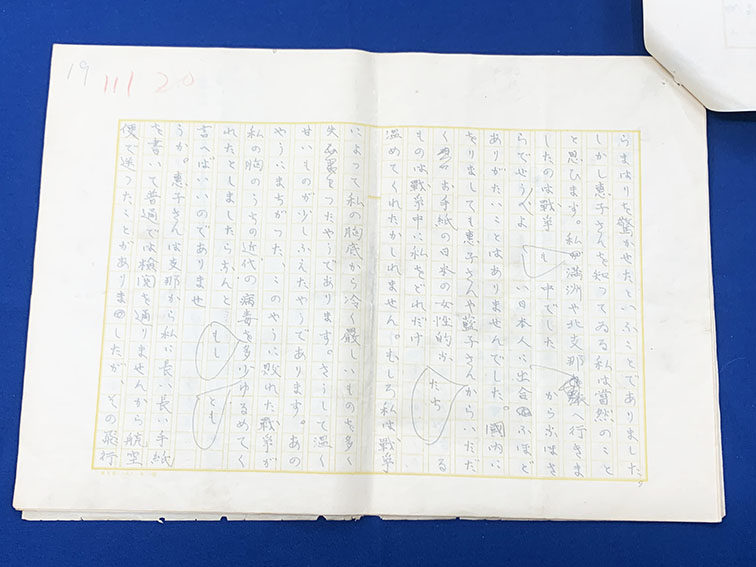 19 111 20
らまはりを驚かせたといふことでありました
しかし恵子さんを知つてゐる私は当然のこと
と思ひます。私が満洲や北支那へ行きま
したのは戦争も中でした
らでせう い日本人に出合ふほど
ありがたいことはありませんでした。國内に
をりましても恵子さんや 子さんからいただ
くお手紙の日本の女性的な たち る
ものは戦争中に私をどれだけ
温めてくれたかしれません。むしろ私は戦争
によつて私の胸底から冷く厳しいものを多く
失 つたやうであります。さうして温く
せいものが少しふえたやうであります。あの
やうにまちがつた、このやうに敗れた戦争が
私の胸のうちの近代の病毒を多少ゆるめてく
れたとしましたらなんと とも
言へばいいのでありませ もし
うか。恵子さんは支那から私に長い長い手紙
を書いて普通では検閲を通りませんから航空
便で送つたことがありましたが、その飛行